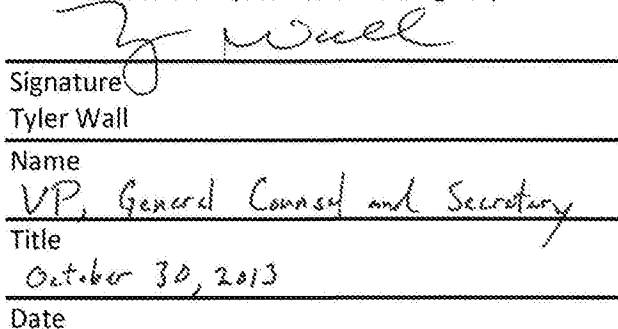 Signature
Tyler Wall
Name
VP, General Counsel and Secretary
Title
October 30, 2013
Date